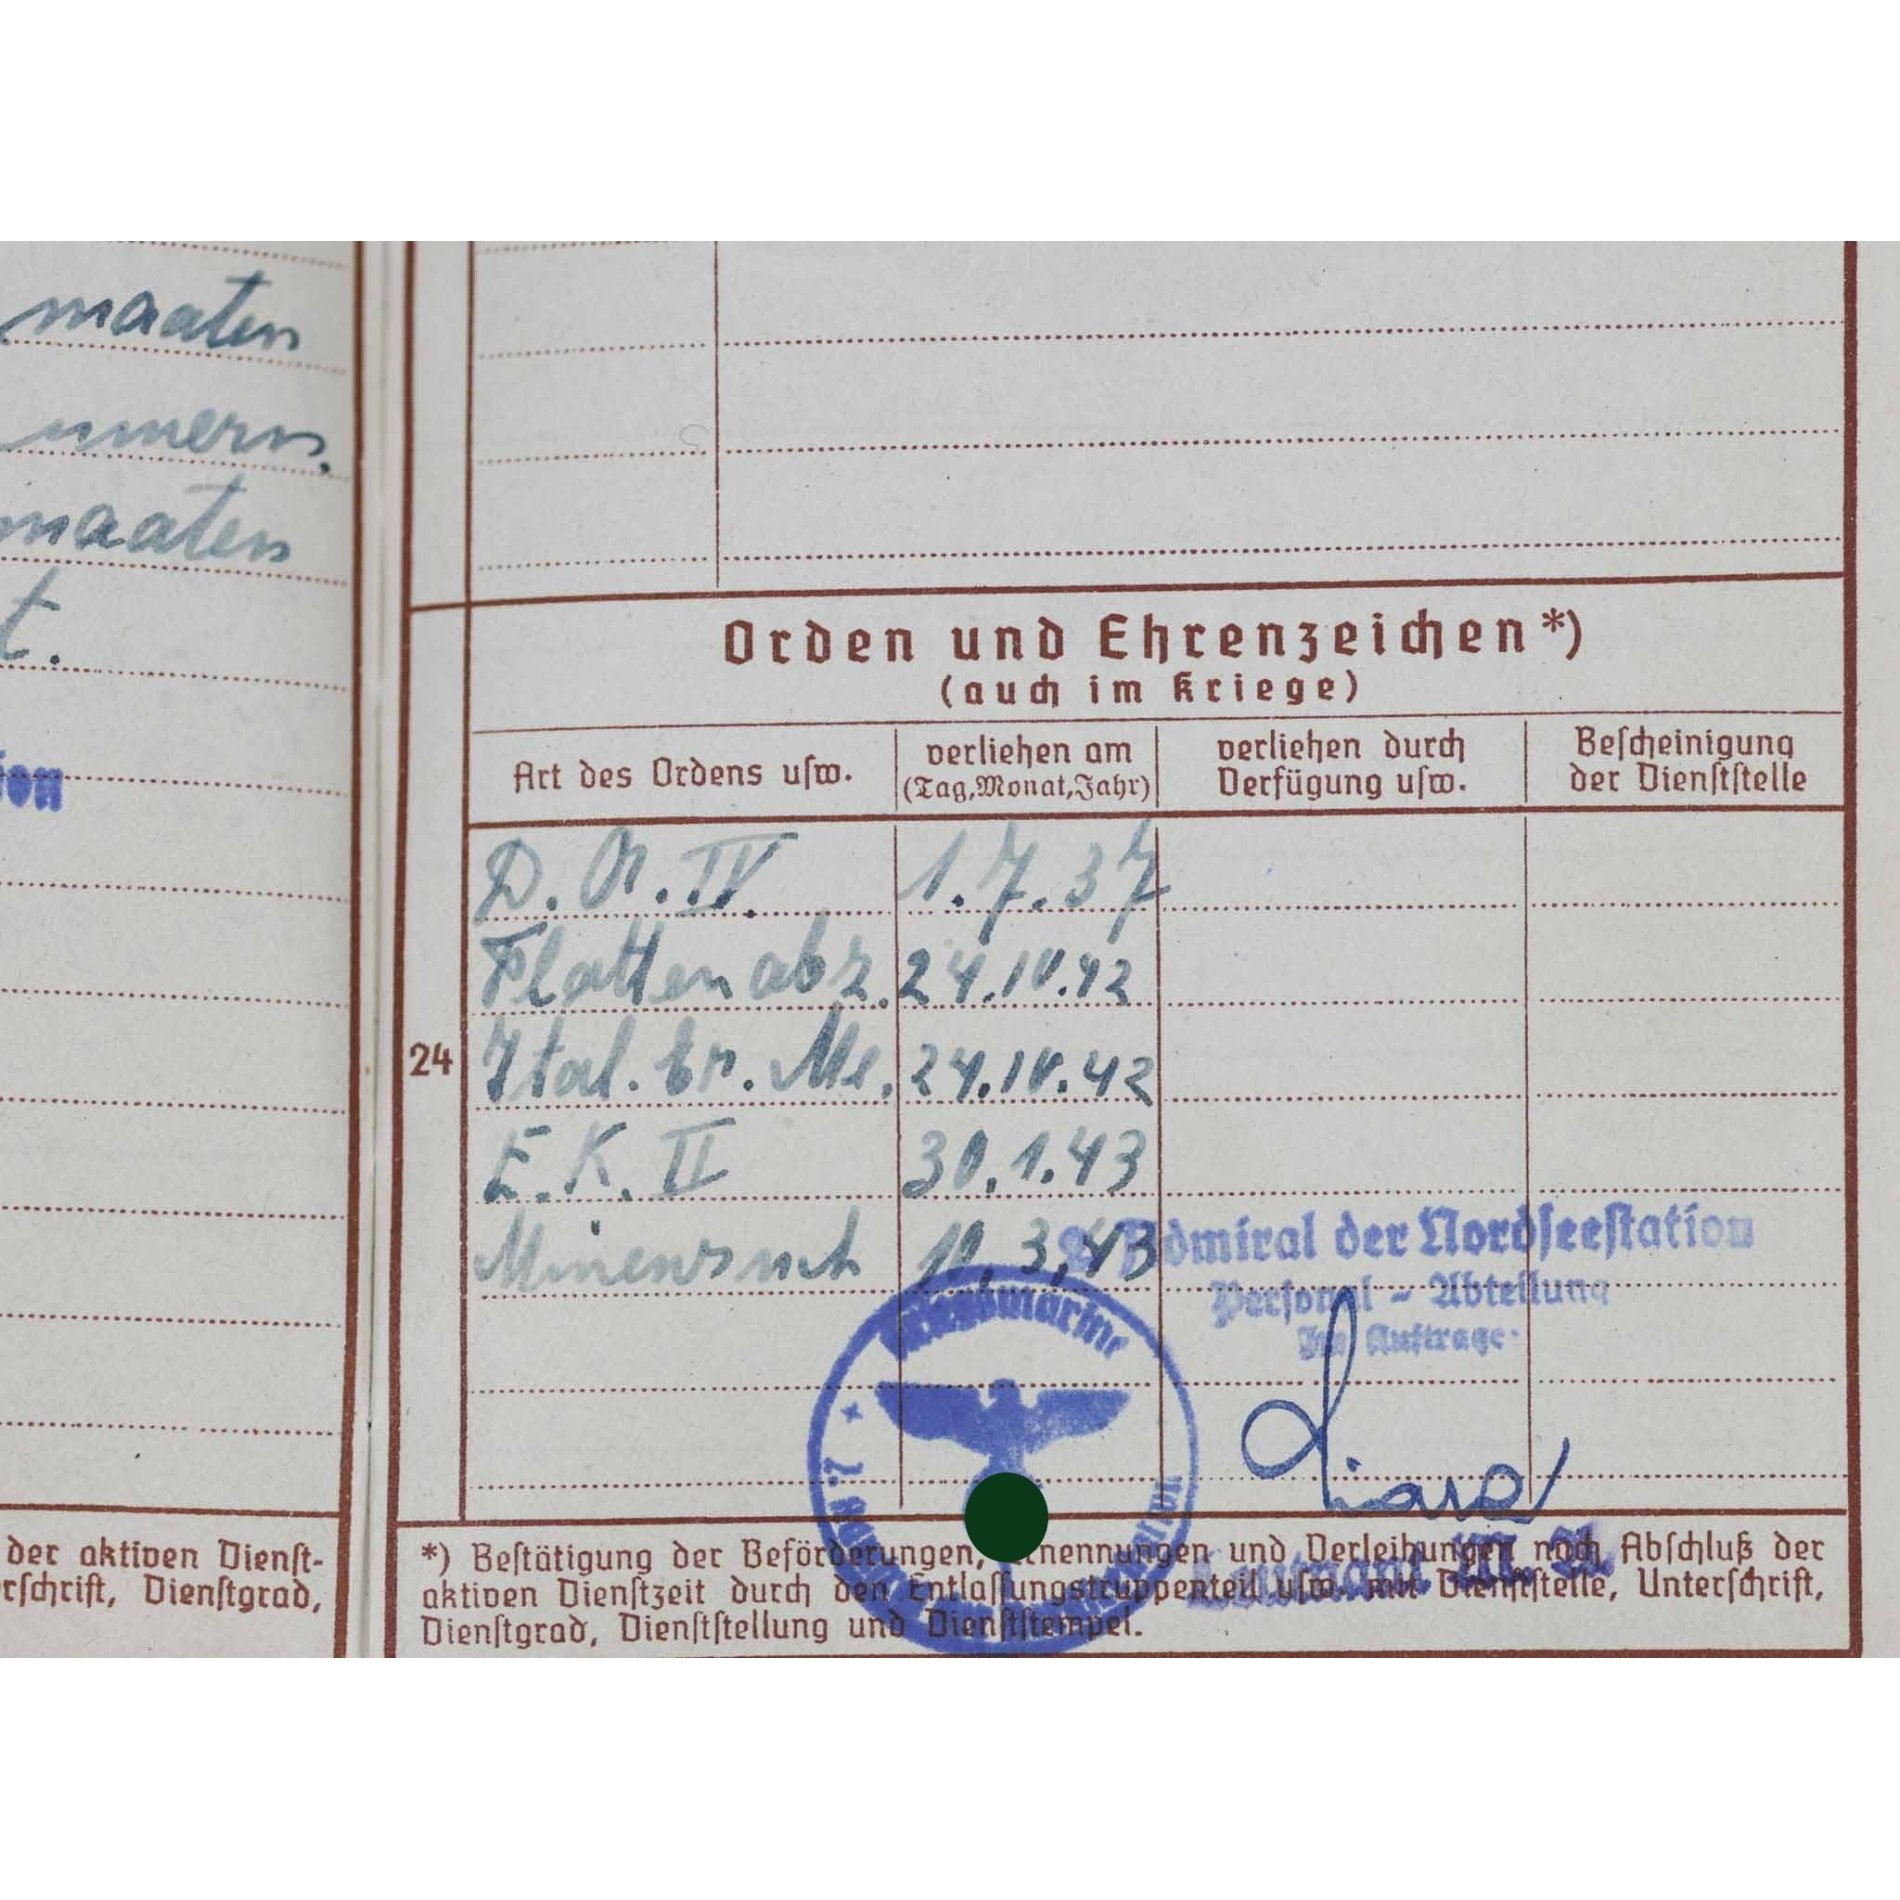 maaten
maaten
t.
Orden und Ehrenzeichen*)
(auch im Kriege)
Art des Ordens uſw.
verliehen am
(Tag, Monat, Jahr)
verliehen durch
Verfügung uſw.
Beſcheinigung
der Dienſtſtelle
24
D. A. IV. 1.7.37
Flottenabz. 24.10.42
Ital. Er. Me. 24.10.42
E.K. II 30.1.43
Minens 10.3.43
Admiral der Nordſeeſtation
Perſonal - Abteilung
Im Auftrage
Kriegsmarine
der aktiven Dienſt-
rſchrift, Dienſtgrad,
*) Beſtätigung der Beförderungen, Ernennungen und Verleihungen nach Abſchluß der
aktiven Dienſtzeit durch den Entlaſſungstruppenteil uſw. mit Dienſtſtelle, Unterſchrift,
Dienſtgrad, Dienſtſtellung und Dienſtſtempel.